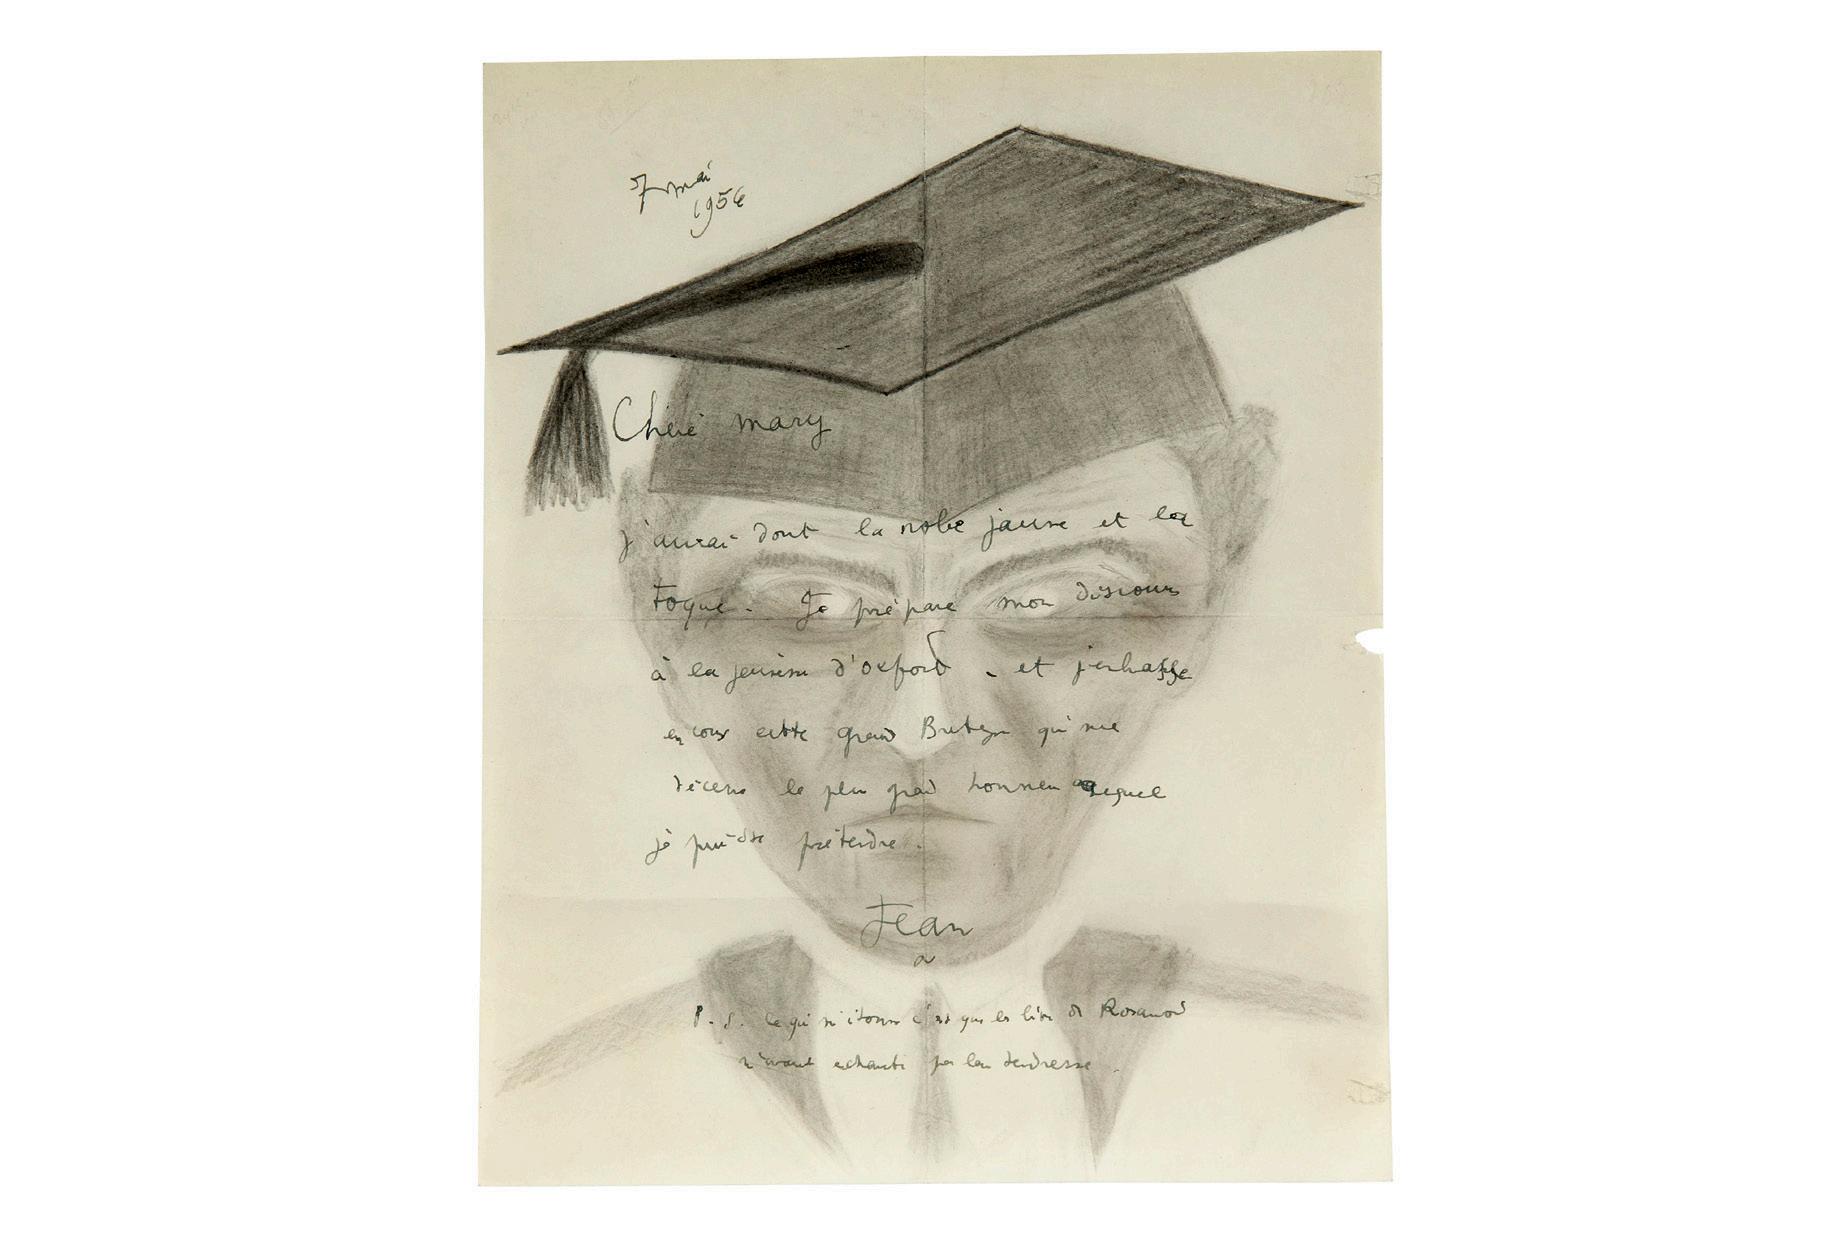 7 mai
1956
Chérie mary
J'aurai dont la robe jaune et la
Toque. Je prépare mon discours
à la jeunesse d'Oxford. et j'embrasse
encore cette grand Bretagne qui me
décerne le plus grand honneur auquel
je puisse prétendre.
Jean
P.S. Ce qui m'étonne c'est que les livre de Rosamond
tendresse